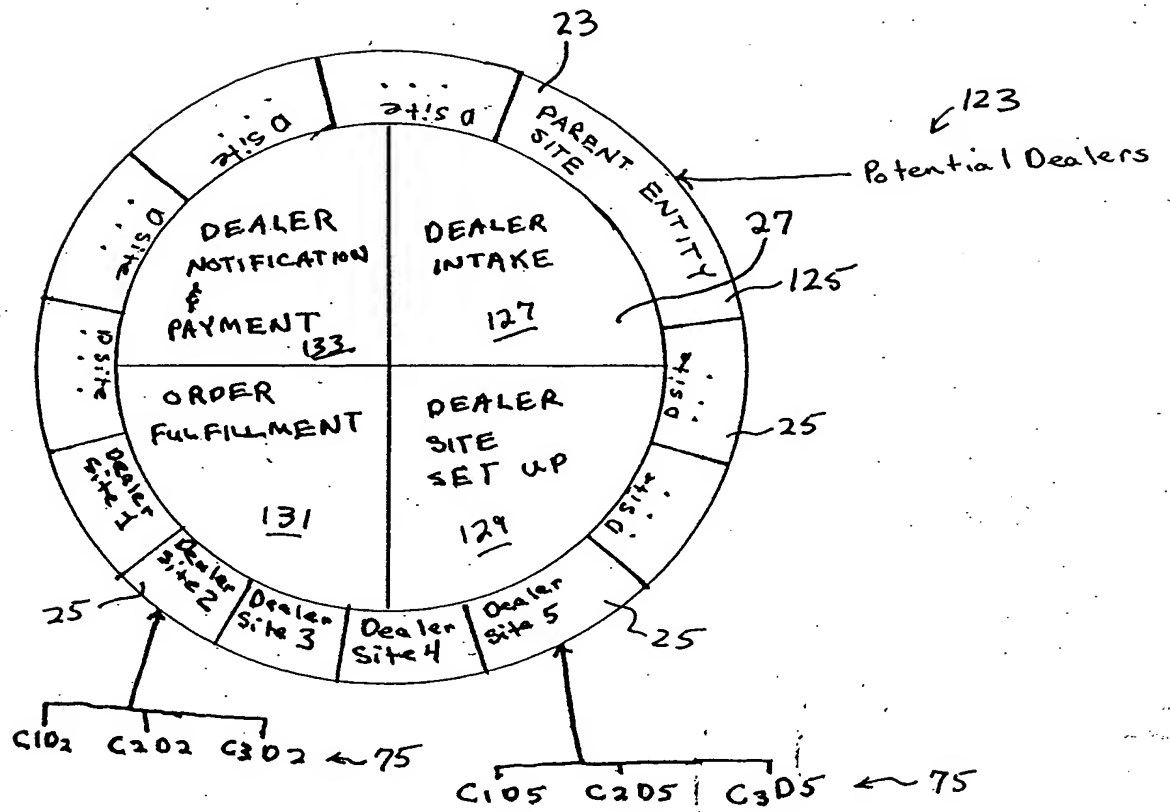 23
123
Potential Dealers
PARENT ENTITY
SITE
D Site
...
D Site
...
D Site
...
D Site
...
27
125
DEALER
NOTIFICATION
&
PAYMENT
133
DEALER
INTAKE
127
ORDER
FULFILLMENT
131
DEALER
SITE
SET UP
129
D Site
...
25
D Site
...
Dealer
Site 1
Dealer
Site 2
Dealer
Site 3
Dealer
Site 4
Dealer
Site 5
25
25
C1D2 C2D2 C3D2 75
C1D5 C2D5 C3D5 75